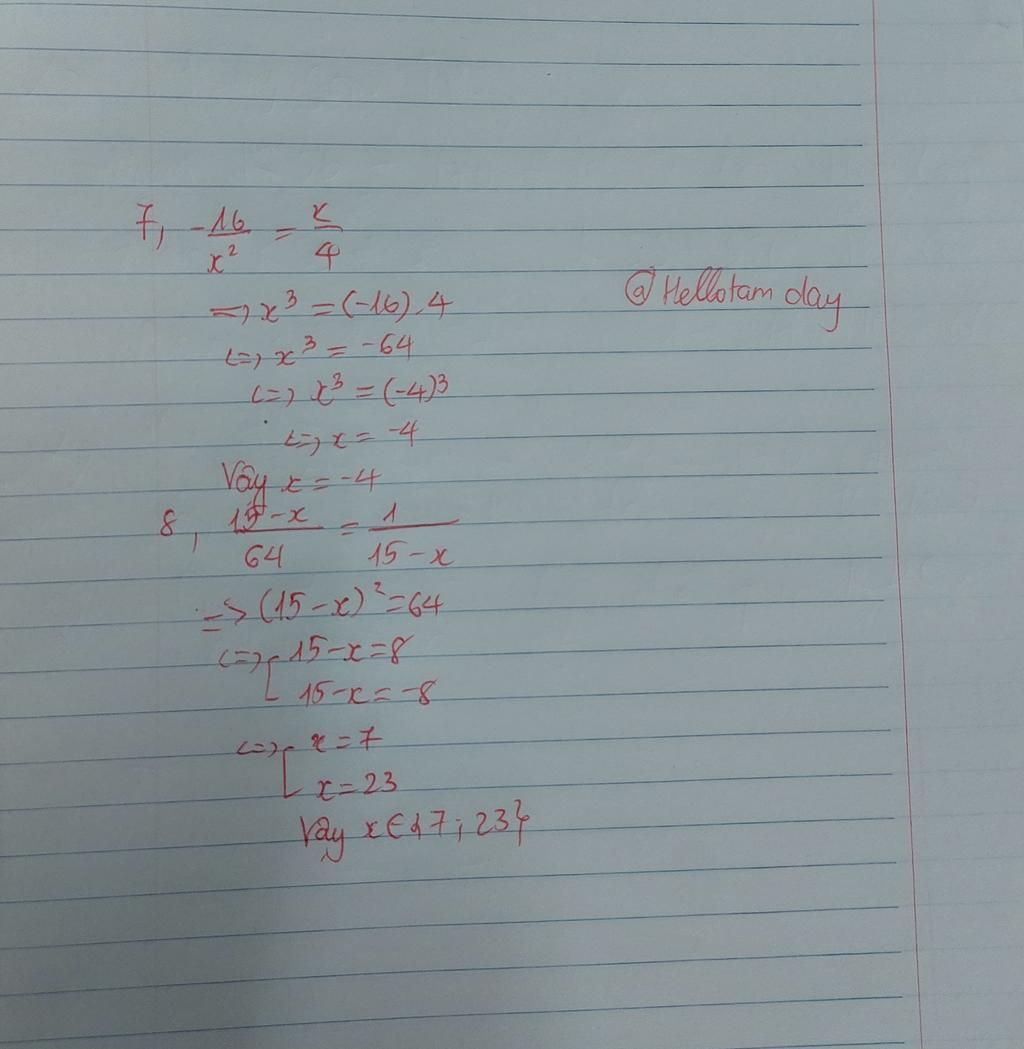 7, -16/x² = x/4
=> x³ = (-16).4
<=> x³ = -64
<=> x³ = (-4)³
<=> x = -4
Vậy x = -4
@Hellotam day
8, 15-x/64 = 1/15-x
=> (15-x)² = 64
<=> [ 15-x = 8
15-x = -8
<=> [ x = 7
x = 23
Vậy x ∈ {7; 23}